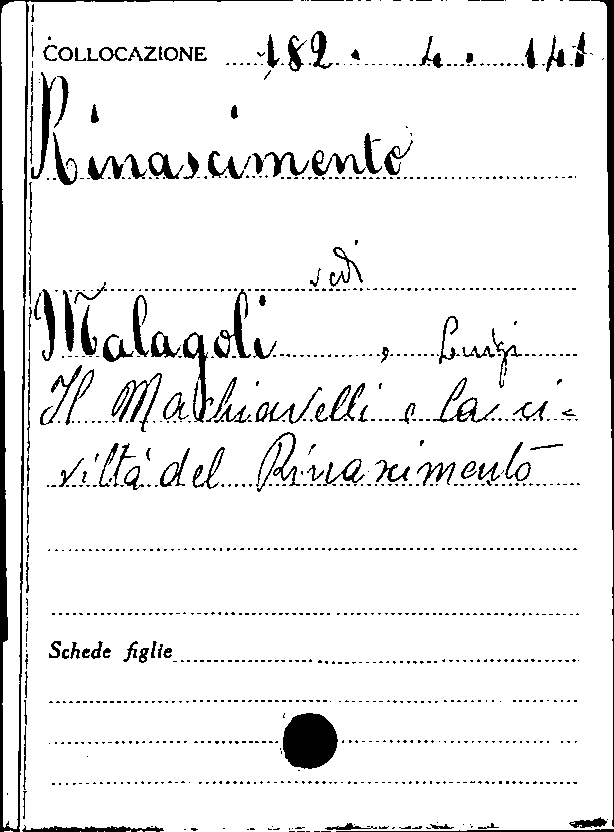 COLLOCAZIONE 182. 4. 141
Rinascimento
vedi
Malagoli, Luigi
Il Machiavelli e la ci-
viltà del Rinascimento
Schede figlie